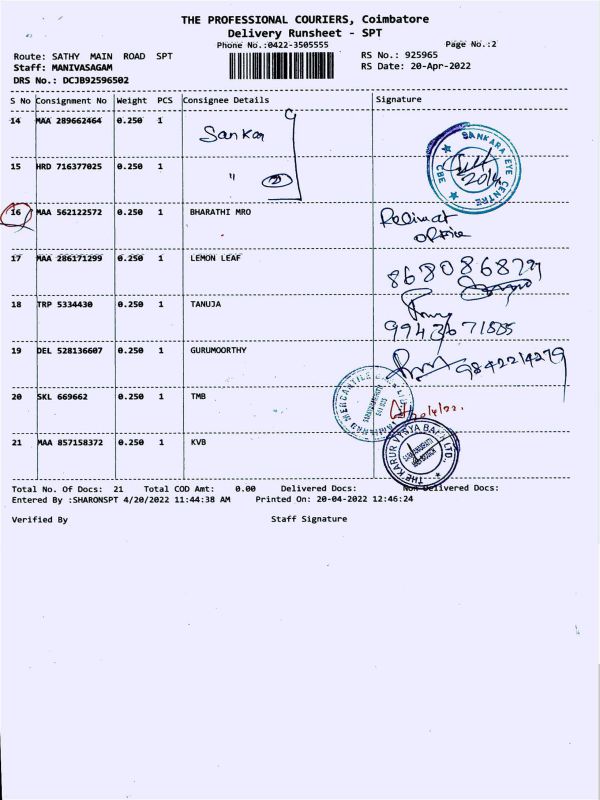 THE PROFESSIONAL COURIERS, Coimbatore
Delivery Runsheet - SPT
Phone No.:0422-3505555
Page No.:2
Route: SATHY MAIN ROAD SPT
RS No.: 925965
Staff: MANIVASAGAM
RS Date: 20-Apr-2022
DRS No.: DCJB92596502
S No Consignment No Weight PCS Consignee Details Signature
14 MAA 289662464 0.250 1 Sankar
SANKARA EYE CENTRE CBE
15 HRD 716377025 0.250 1 " 2
16 MAA 562122572 0.250 1 BHARATHI MRO
office
17 MAA 286171299 0.250 1 LEMON LEAF
18 TRP 5334430 0.250 1 TANUJA
19 DEL 528136607 0.250 1 GURUMOORTHY 9842214279
20 SKL 669662 0.250 1 TMB
21 MAA 857158372 0.250 1 KVB
THE KARUR VYSYA BANK LTD.,
Total No. Of Docs: 21 Total COD Amt: 0.00 Delivered Docs: Non Delivered Docs:
Entered By :SHARONSPT 4/20/2022 11:44:38 AM Printed On: 20-04-2022 12:46:24
Verified By Staff Signature